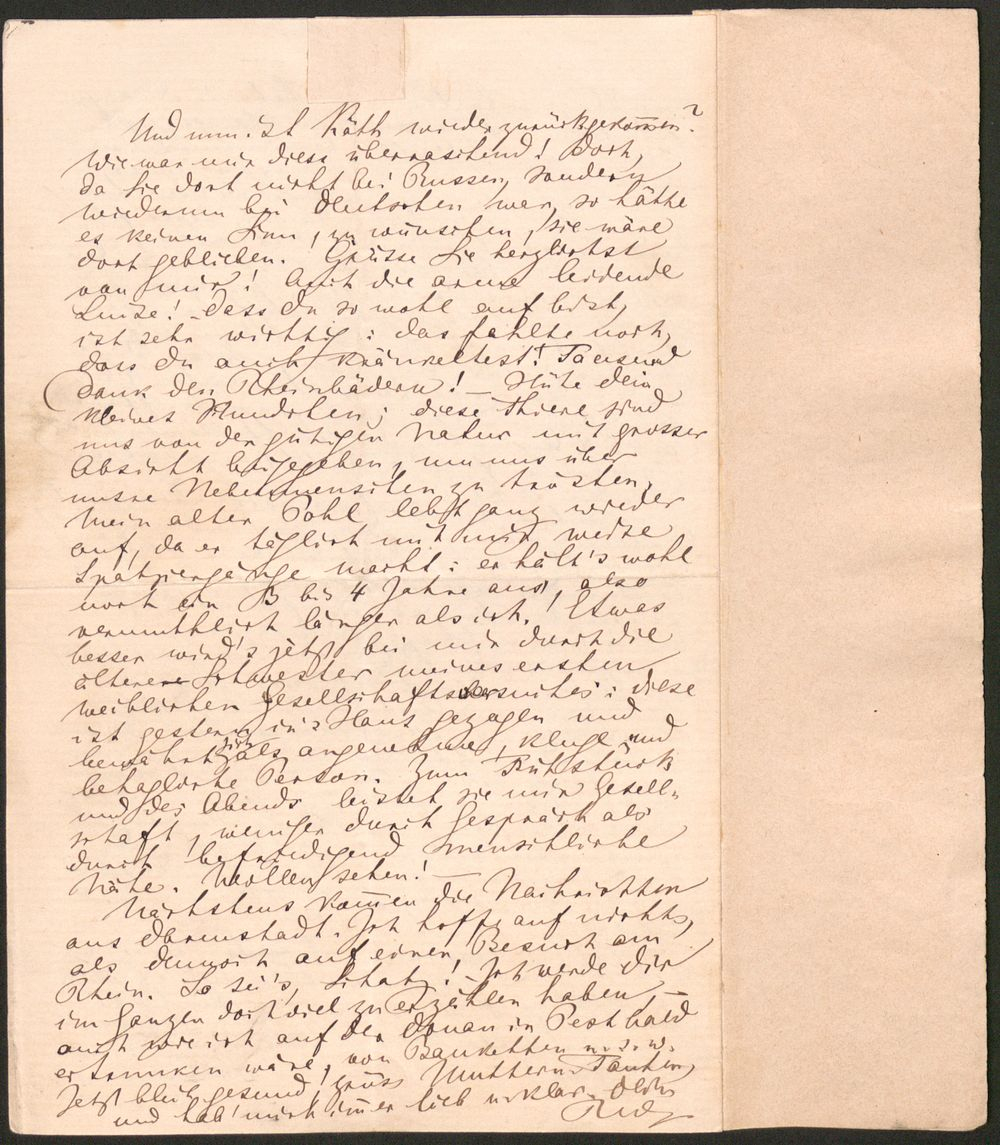 Und nun ist Käth wieder zurückgekommen?
Wie war mir diess überraschend! Doch,
da Sie dort nicht bei Russen, sondern
wiederum bei Deutschen war, so hätte
es keinen Sinn, zu wünschen, sie wäre
dort geblieben. Grüsse Sie herzlichst
von mir! Auch die arme leidende
Luise! Dass du so wohl auf bist,
ist sehr wichtig: das fehlte noch,
dass du auch kränkeltest! Tausend
Dank den Rheinbädern! – Hüte dein
kleines Hundchen; diese Thiere sind
uns von der gütigen Natur mit grosser
Absicht beigegeben, um uns über
unsre Nebenmenschen zu trösten.
Mein alter Pohl lebt ganz wieder
auf, da er täglich mit mir weite
Spatziergänge macht: er hält's wohl
noch ein 3 bis 4 Jahre aus, also
vermuthlich länger als ich! Etwas
besser wird's jetzt bei mir durch die
ältere Schwester meines ersten
weiblichen Gesellschaftsversuches: diese
ist gestern in's Haus gezogen und
bewährt sich als angenehme, kluge und
behagliche Person. Zum Frühstück
und des Abends leistet sie mir Gesell-
schaft, weniger durch Gespräch als
durch befriedigend menschliche
Nähe. Wollen sehen! –
Nächstens kom̅en die Nachrichten
aus Darmstadt. Ich hoffe auf nichts,
als dennoch auf einen Besuch am
Rhein. So sei's, Schatz! Ich werde dir
im Ganzen doch viel zu erzählen haben, –
auch wie ich auf der Donau in Pest bald
ertrunken wäre, von Banketten u. s. w.
Jetzt bleib gesund, grüss Muttern, Tanten,
und hab' mich im̅er lieb u. klar. Dein